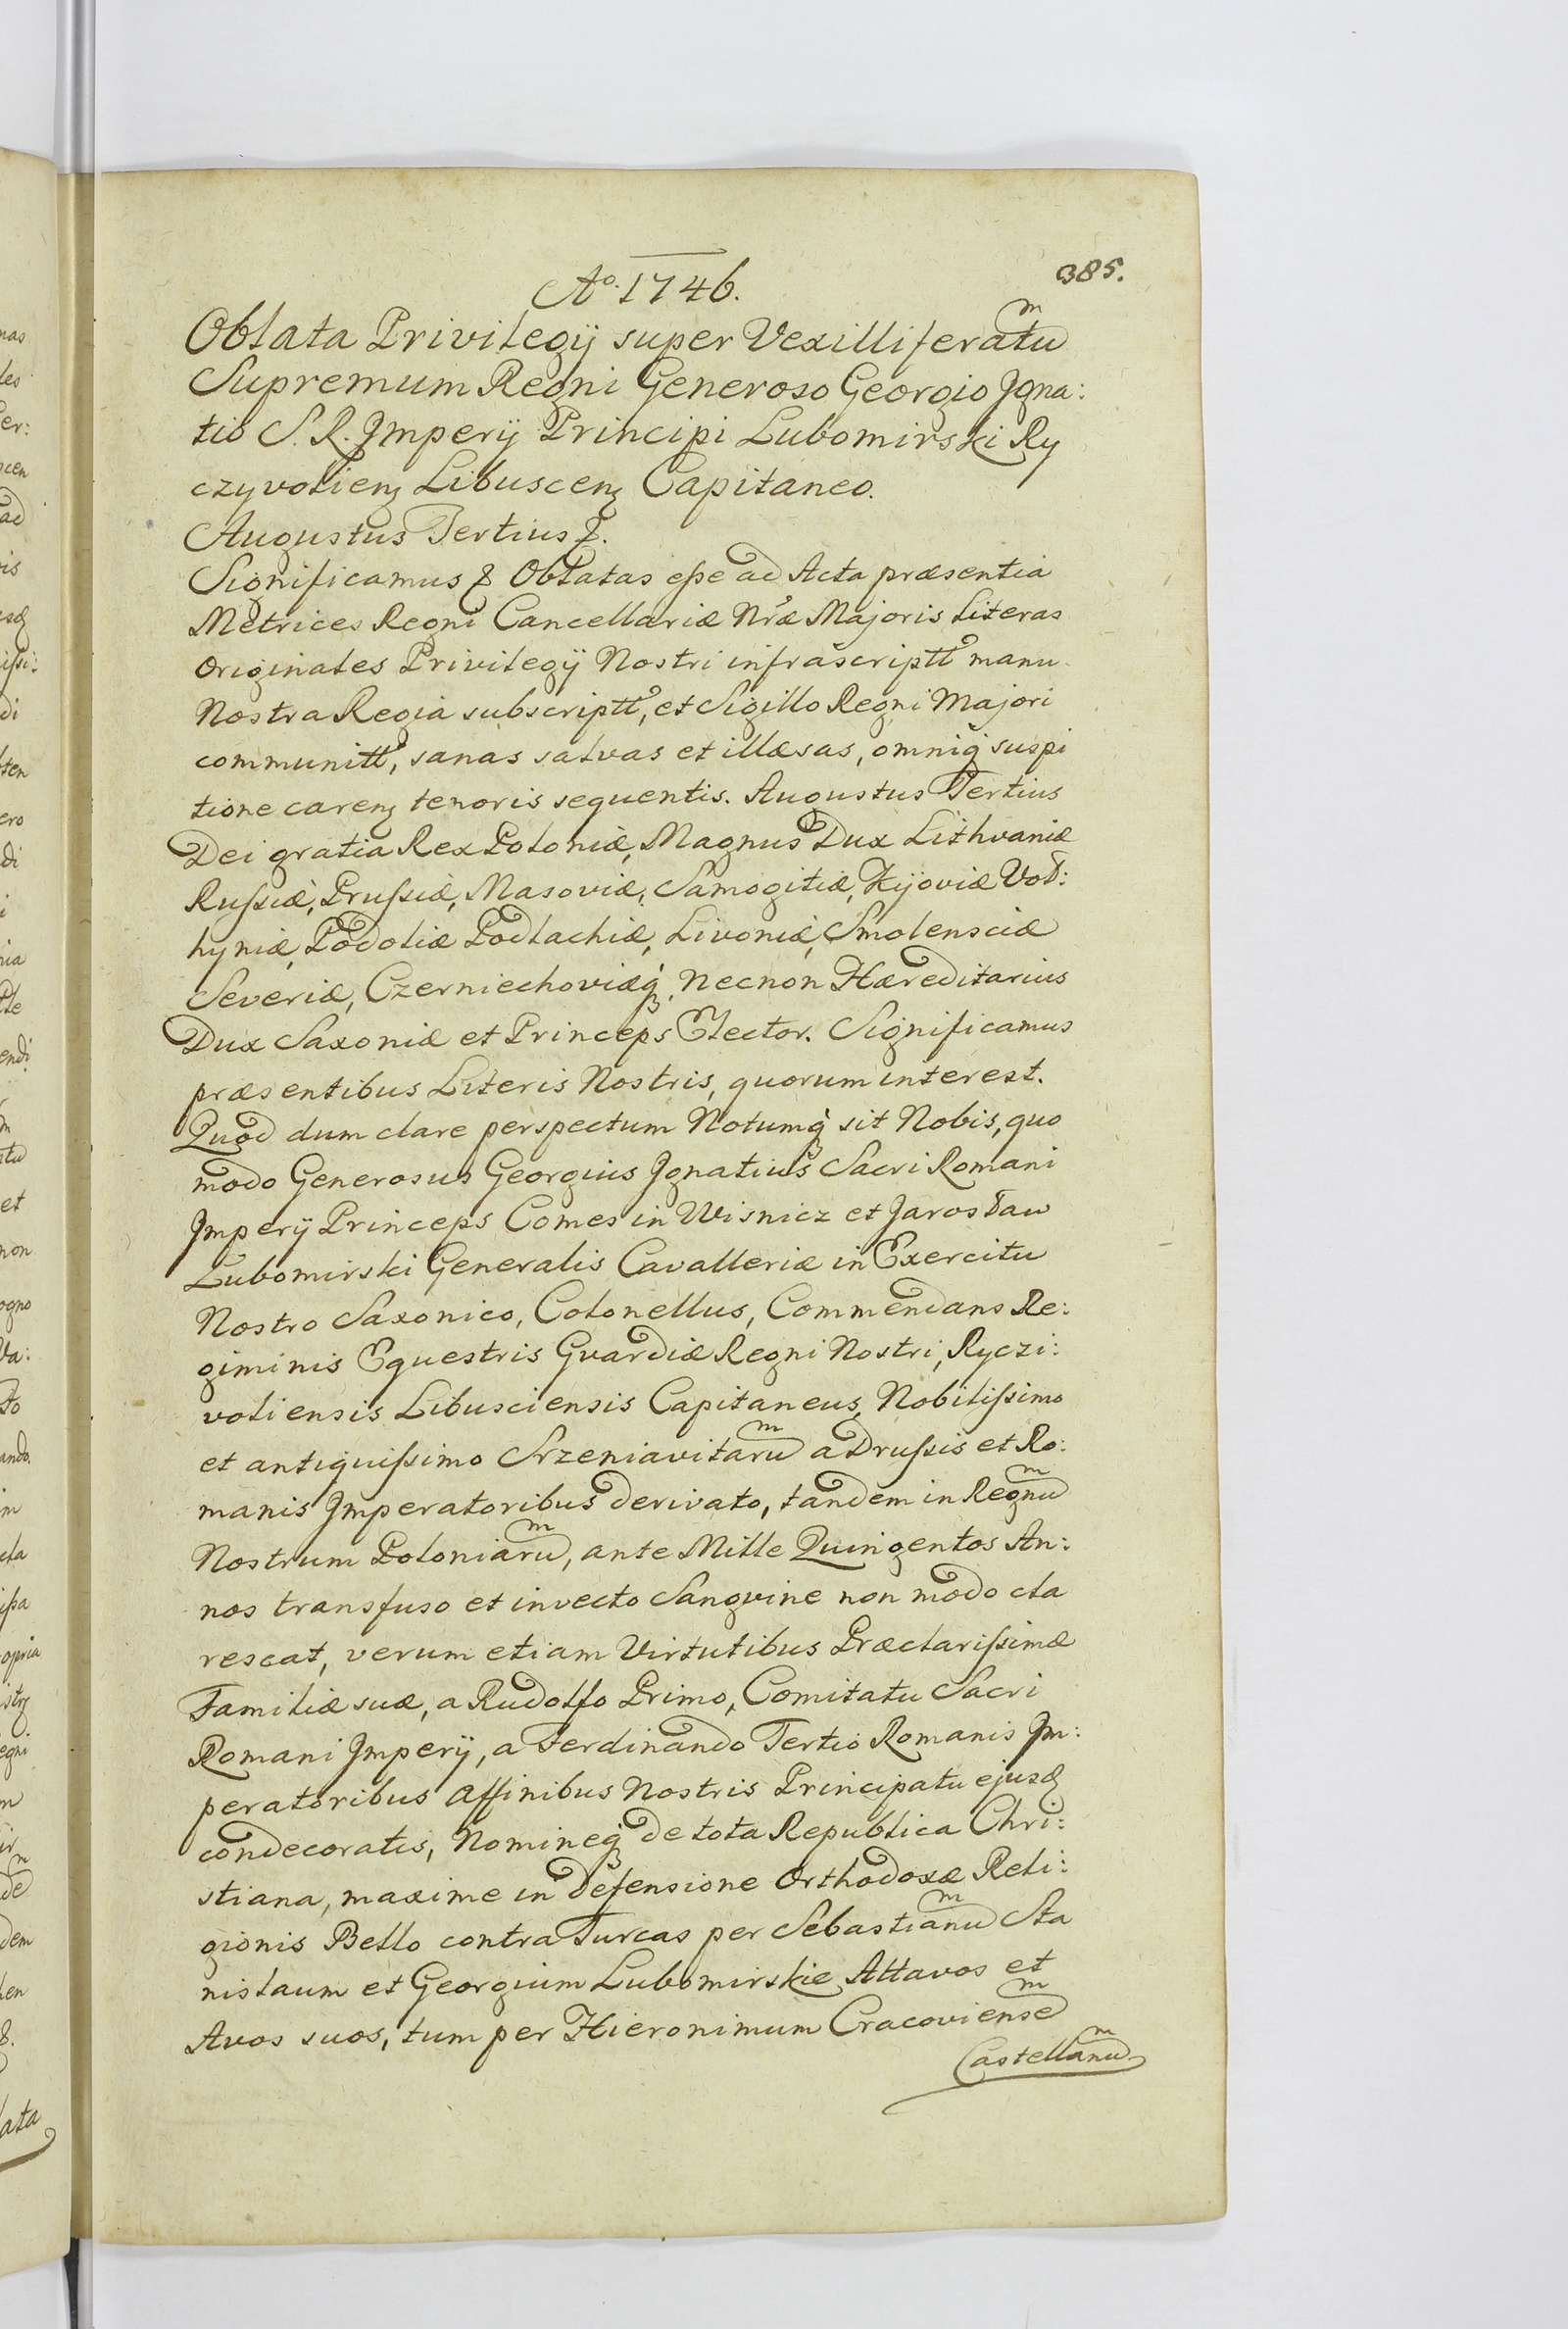 Aº 1746.
385.
Oblata Privilegÿ super Vexilliferatum
Supremum Regni Generoso Georgio Jgna:
tio S. R. Jmperÿ Principi Lubomirski Ry
czyvolienȝ Libuscenȝ Capitaneo.
Augustus Tertius ꝛ.
Significamus ꝛ Oblatas eſse ad Acta præsentia
Metrices Regni Cancellariæ Nræ Majoris Literas
Originales Privilegÿ Nostri infrascriptt manu
Nostra Regia subscriptt, et Sigillo Regni Majori
communitt, sanas salvas et illæsas, omniq suspi
tione carenȝ tenoris sequentis. Augustus Tertius
Dei gratia Rex Poloniæ, Magnus Dux Lithvaniæ
Ruſsiæ, Pruſsiæ, Masoviæ, Samogitiæ, Kijoviæ Voł:
hyniæ, Podoliæ Podlachiæ, Livoniæ, Smolensciæ
Severiæ, Czerniechoviæq, Necnon Hæreditarius
Dux Saxoniæ et Princeps Elector. Significamus
præsentibus Literis Nostris, quorum interest.
Quod dum clare perspectum Notumq sit Nobis, quo
modo Generosus Georgius Jgnatius Sacri Romani
Jmperÿ Princeps Comes in Wisnicz et Jarosław
Lubomirski Generalis Cavalleriæ in Exercitu
Nostro Saxonico, Colonellus, Commendans Re:
giminis Equestris Gvardiæ Regni Nostri, Ryczi:
voliensis Libusciensis Capitaneus, Nobiliſsimo
et antiquiſsimo Srzeniavitarum a Druſsis et Ro:
manis Jmperatoribus derivato, tandem in Regnum
Nostrum Poloniarum, ante Mille Quingentos An:
nos transfuso et invecto Sangvine non modo cla
rescat, verum etiam Virtutibus Præclariſsimæ
Familiæ suæ, a Rudolfo Primo, Comitatu Sacri
Romani Jmperÿ, a Ferdinando Tertio Romanis Jm:
peratoribus Affinibus Nostris Principatu ejusq
condecoratis, Nomineq de tota Republica Chri:
stiana, maxime in defensione Orthodoxæ Reli:
gionis Bello contra Turcas per Sebastianum Sta
nislaum et Georgium Lubomirskie Attavos et
Avos suos, tum per Hieronimum Cracoviensem
Castellanum